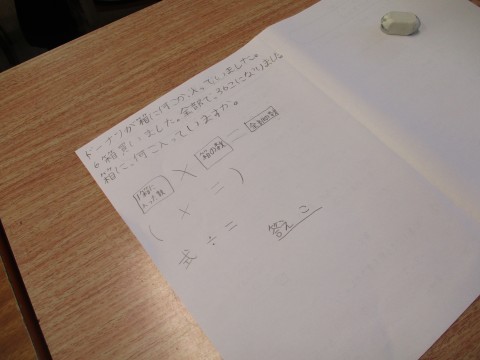 ドーナツが箱に何こか入っていました。
6箱買いました。全部で、36こになりました。
箱に、何こ入っていますか。
1箱に入った数 × 箱の数 = 全部の数
( × = )
式 ÷ =
答え こ